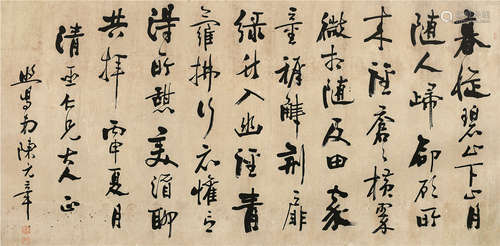 暮從碧山下月
隨人歸卻顧所
來徑蒼〻橫翠
微相隨及田家
童稚荊扉
綠竹入幽徑青
蘿拂行衣懽言
得所憩美酒聊
共揮丙申夏月
清仁兄大人正
陳